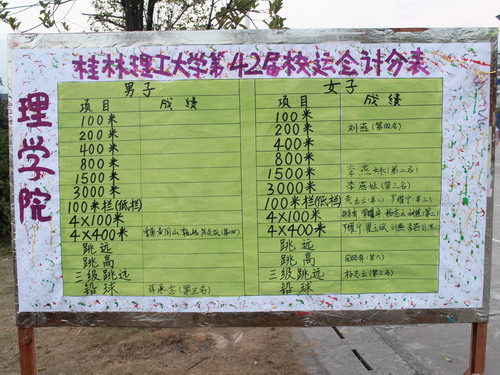 桂林理工大学第42届校运会计分表
理学院
男子
项目 成绩
100米
200米
400米
800米
1500米
3000米
100米栏(低栏)
4X100米
4X400米
跳远
跳高
三级跳远
铅球
女子
项目 成绩
100米
200米 刘燕(第四名)
400米
800米
1500米 李燕妹(第二名)
3000米 李燕妹(第三名)
100米栏(低栏)
4X100米
4X400米
跳远
跳高
三级跳远 杨志云(第三名)
铅球